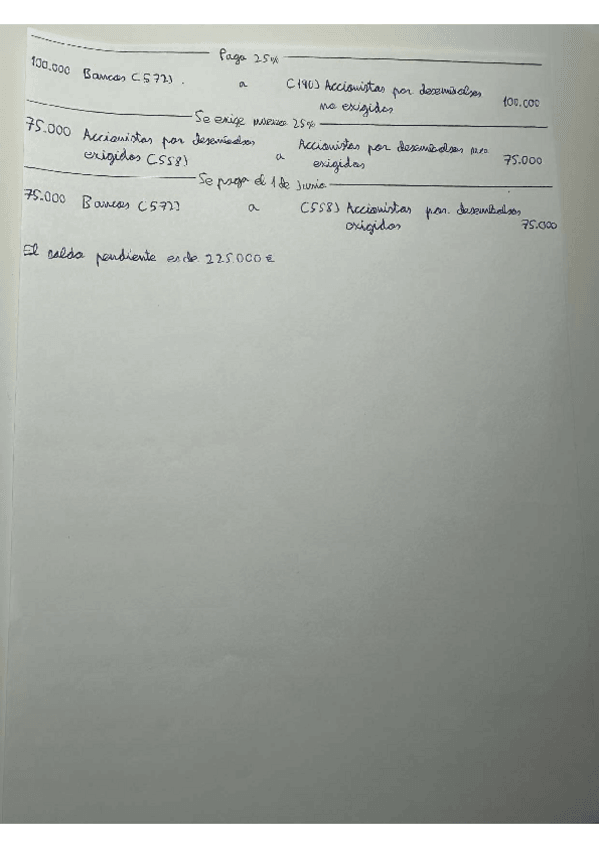 Paga 25%
100.000 Bancos (572). a (190) Accionistas por desembolsos no exigidos 100.000
Se exige nuevo 25%
75.000 Accionistas por desembolsos exigidos (558) a Accionistas por desembolsos no exigidos 75.000
Se paga el 1 de Junio
75.000 Bancos (572) a (558) Accionistas por desembolsos exigidos 75.000
El saldo pendiente es de 225.000 €